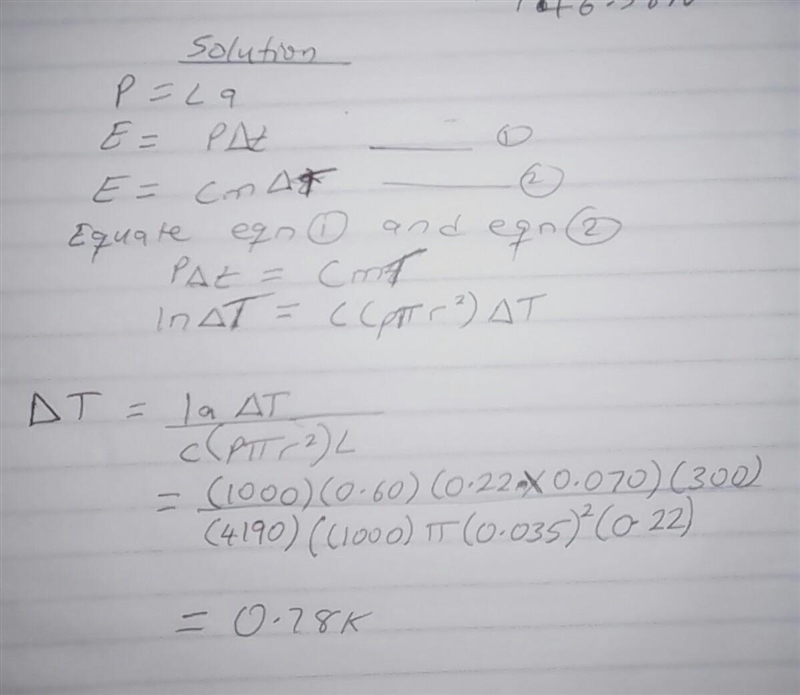 Solution
P = La
E = PΔt ——— ①
E = CmΔT ——— ②
Equate eqn ① and eqn ②
PΔt = CmT
lnΔT = C(ρπr²) ΔT
ΔT = la ΔT
c(ρπr²)L
= (1000)(0.60)(0.22 × 0.070)(300)
(4190)((1000)π(0.035)²(0.22)
= 0.78K